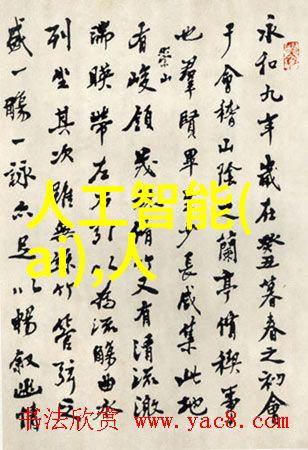 永和九年歲在癸丑暮春之初會
于會稽山陰之蘭亭脩稧事
也羣賢畢少長咸集此地
有崇山峻領茂脩又有清流激
湍暎帶左右引以為流觴曲水
列坐其次雖無絲竹管弦之
盛一觴一詠亦足以暢敘幽情
人工智能(
ai),人
书法欣赏 www.yac8.com